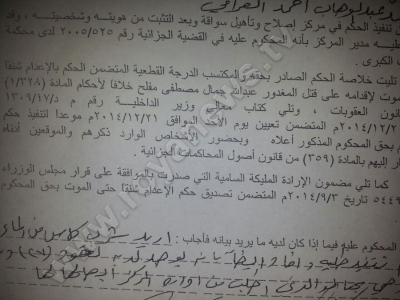 عبدالوهاب احمد
تنفيذ الحكم في مركز إصلاح وتأهيل سواقة وبعد التثبت من هويته وشخصيته ، وقد
مدير المركز بأنه المحكوم عليه في القضية الجزائية رقم ٢٠٠٥/٥٢٥ لدى محكمة
الكبرى .
تليت خلاصة الحكم الصادر بحقه والمكتسب الدرجة القطعية المتضمن الحكم بالإعدام شنقاً
لإقدامه على قتل المغدور عبدالله جمال مصطفى مفلح خلافاً لأحكام المادة (١/٣٢٨)
العقوبات ، وتلي كتاب معالي وزير الداخلية رقم م د/١٣٠٩/١٧
٢٠١٤/١٢/٢ المتضمن تعيين يوم الأحد الموافق ٢٠١٤/١٢/٢١م موعداً لتنفيذ حكم
بحق المحكوم المذكور أعلاه وبحضور الأشخاص الوارد ذكرهم والموقعين أدناه
إليهم بالمادة (٣٥٩) من قانون أصول المحاكمات الجزائية .
كما تلي مضمون الإرادة الملكية السامية التي صدرت بالموافقة على قرار مجلس الوزراء
٥٤٤٩ تاريخ ٢٠١٤/٩/٣م المتضمن تصديق حكم الإعدام شنقاً حتى الموت بحق المحكوم
المحكوم عليه فيما إذا كان لديه ما يريد بيانه فأجاب : اريد شرب كاس من الماء
تنفيذ طلبه
من ادارة المركز
www.hawanews.tv